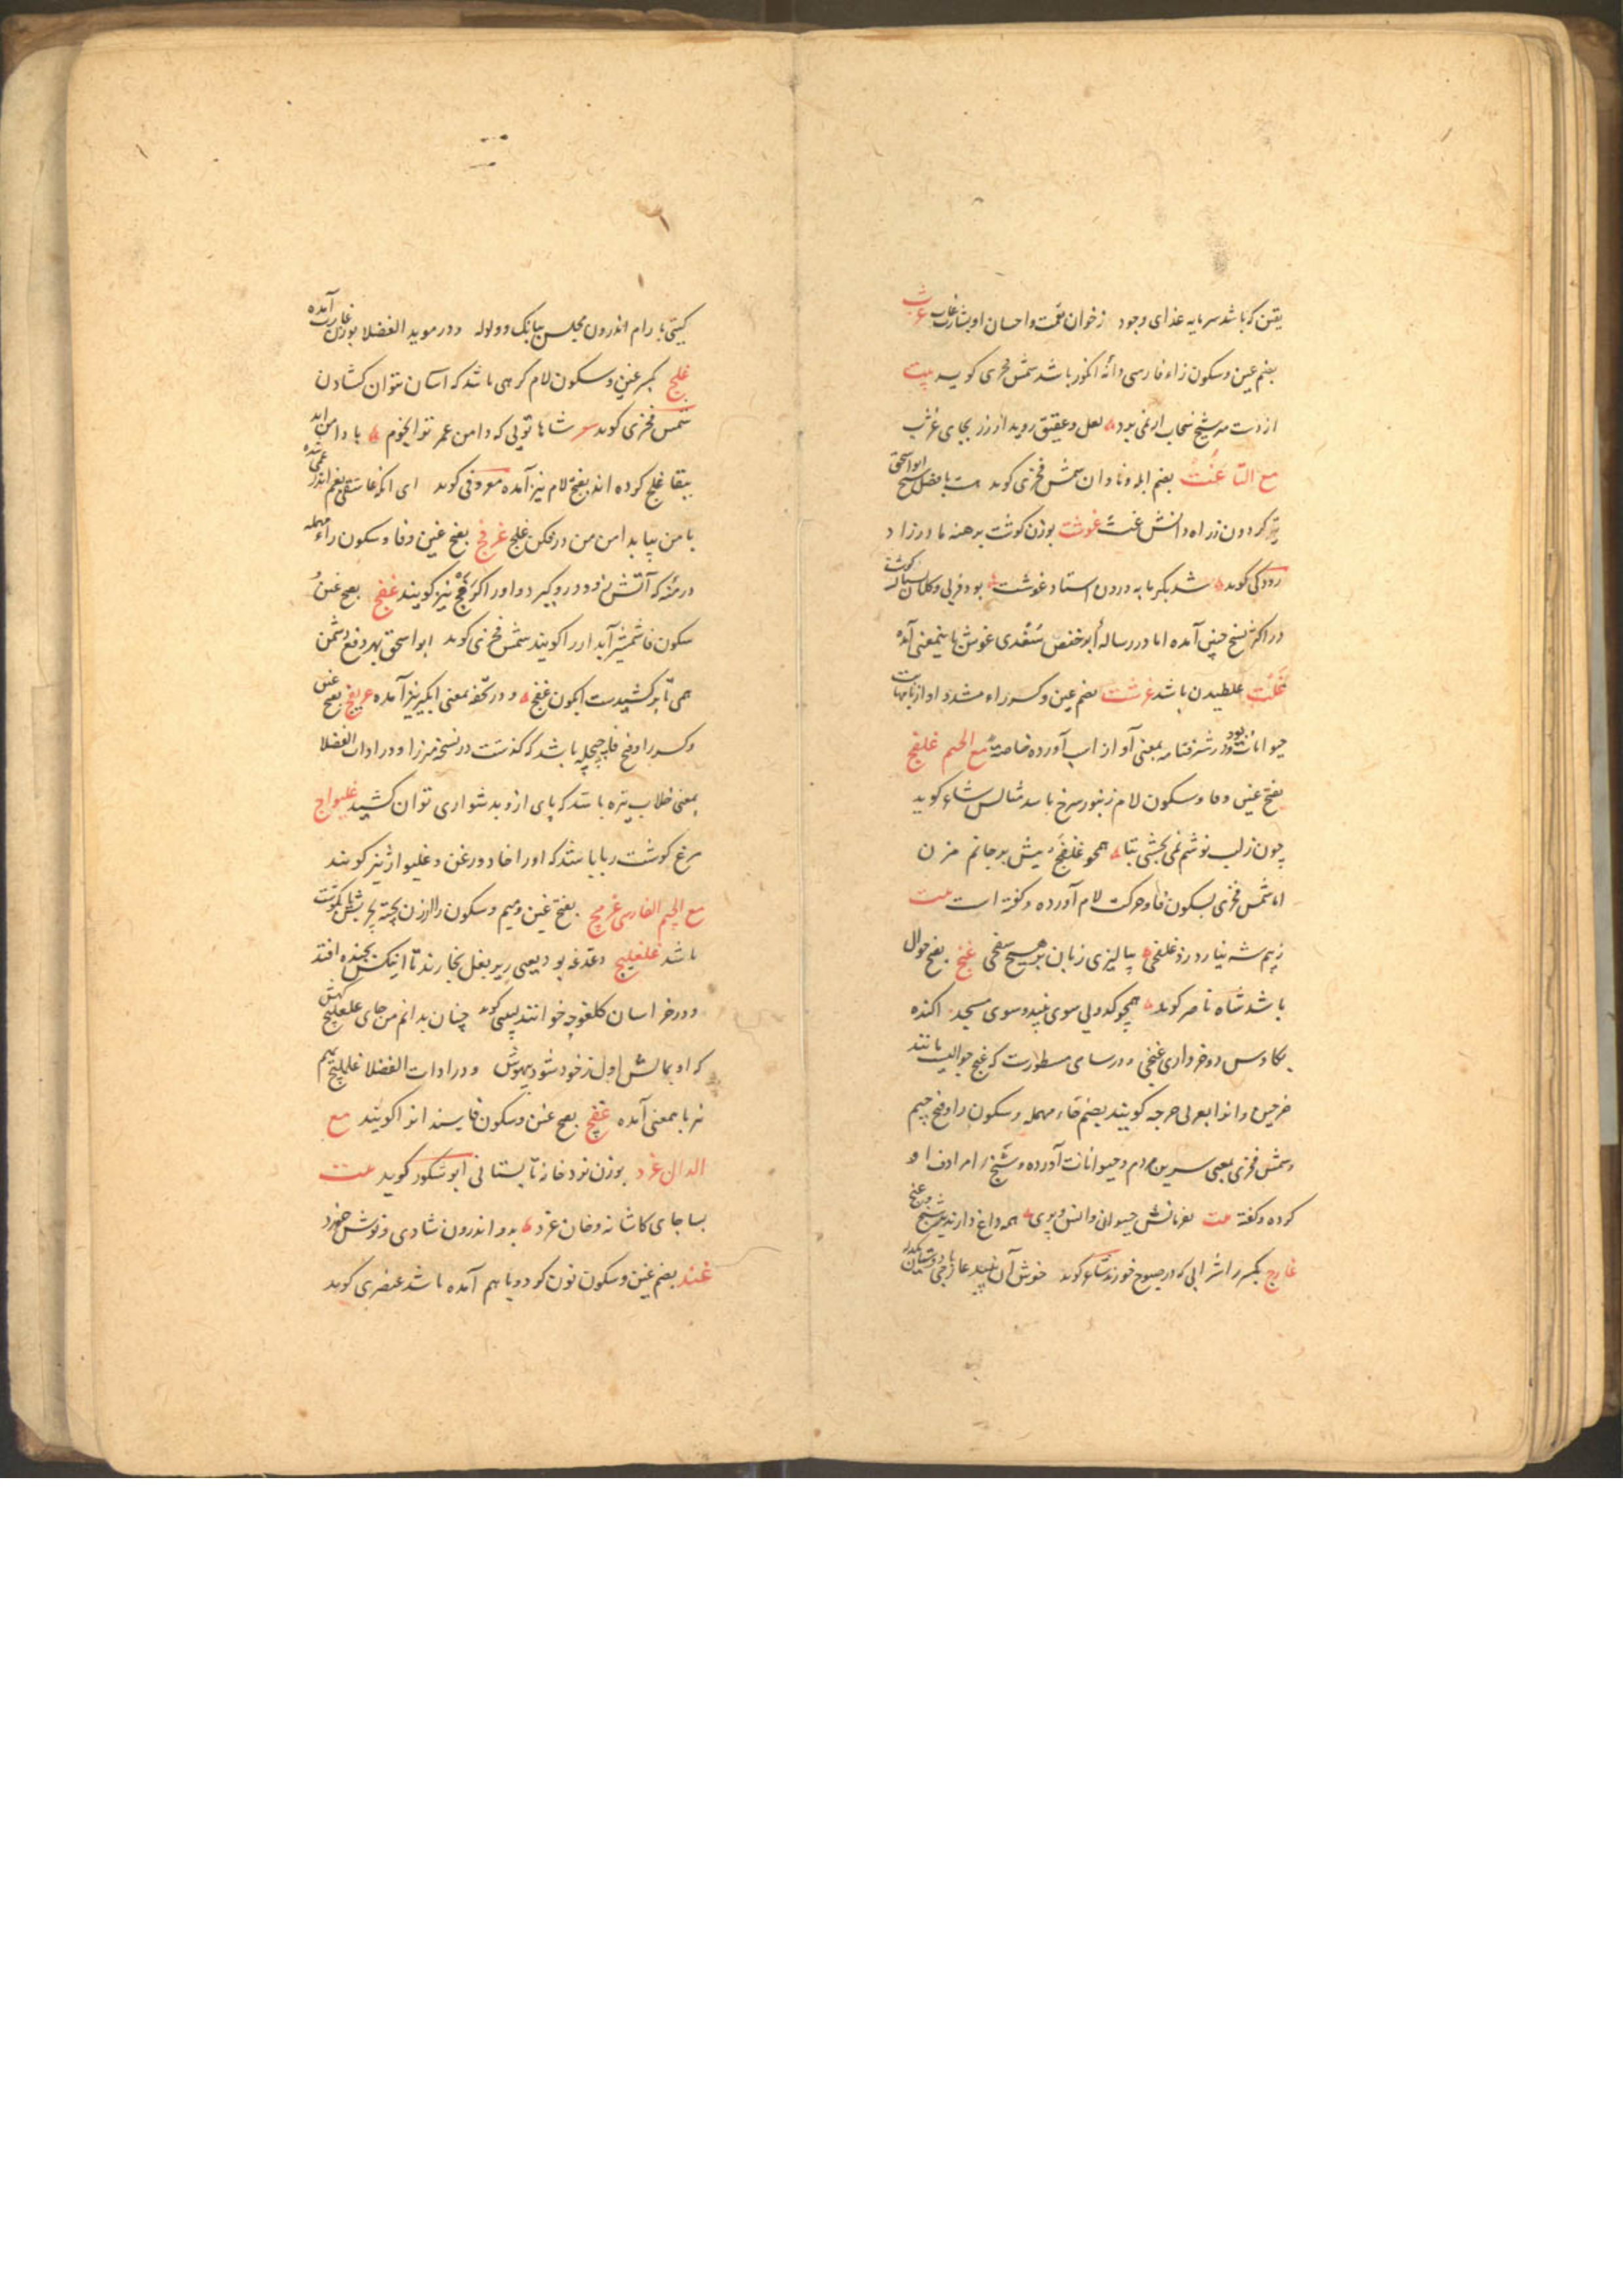 یقین که باشد سرمایه غذای وجود ز خوان نعمت و احسان او بشارت غارب غژب
بضم غین و سکون زاء فارسی دانهٔ انکور باشد شمس فخری کوید بیت
از دست مر شیخ سخاب ار نمی بود لعل و عقیق روید از رز بجای غژب
مع التا غت بضم ابله و نادان شمس فخری کوید ابو اسحق
تیر کردون ز راه دانش غت غوشت بوزن کوشت برهنه مادرزاد
رودکی کوید شد بکرمابه درون استاد غوشت بود فربی و کلان کوشت
در اکثر نسخ چنین آمده اما در رسالهٔ ابو حفص سغدی غوش باینمعنی آمده
غلت غلطیدن باشد غرشت بضم غین و کسر راء مشدد آواز
حیوانات بود و در شرفنامه بمعنی آواز اسب آورده خاصة مع الجیم غلفج
بفتح غین و فا و سکون لام زنبور سرخ باشد مثالش شاعر کوید
چون ز لب نوشم نمی بخشی بتا همچو غلفج نیش بر جانم مزن
اما شمس فخری بسکون فا و حرکت لام آورده و کفته است بیت
ز بیم شه نیارد زد غلفج پیالیزی زبان بر هیچ سفجی غنج بفتح جوال
باشد شاه ناصر کوید همچو کدویی سوی نبید و سوی مسجد آکنده
بکاورس دو خرواری غنجی و در سامی مسطورست که غنج جوالیست مانند
خرجین و انرا بعربی حرجه کویند بضم حاء مهمله و سکون را و فتح جیم
و شمس فخری بمعنی سرین مردم و حیوانات آورده و شنج را مرادف او
کرده و کفته بیت بفرمانش حیوانی و انس و پری همه داغ دارند بر شنج و غنج
غارج بکسر را شرابی که در صبوح خورند شاعر کوید خوش آن نبید غارجی با دوستان یکدله
کیتی بارام اندرون مجلس ببانک و ولوله و در موید الفضلا بوزن غارب آمده
غلج بکسر غین و سکون لام کرهی باشد که آسان نتوان کشادن
شمس فخری کوید شعر شاها تویی که دامن عمر ترا نجوم با دامن ابد
ببقا غلج کرده اند بفتح لام نیز آمده معروفی کوید ای آنکه عاشقی بغم اندر غمی شده
با من بیا بدامن من در فکن غلج غرفج بفتح غین و فا و سکون راء مهمله
درمنه که آتش زود درو کیرد و او را کرفج نیز کویند غفج بفتح غین
سکون فا شمشیر آبدار را کویند شمس فخری کوید ابو اسحق بهر دفع دشمن
همی تا بر کشیدست ایکون غفج و در تحفه بمعنی آبکیر نیز آمده غریفج بفتح غین
و کسر را و فتح فا چپچله باشد که کذشت در نسخه میرزا و در ادات الفضلا
بمعنی خلاب تیره باشد که پای ازو بدشواری توان کشید غلیواج
مرغ کوشت ربا باشد که او را خاد و زغن و غلیواژ نیز کویند
مع الجیم الفارسی غرمچ بفتح غین و میم و سکون را ارزن پخته
باشد غلغلیچ دغدغه بود یعنی زیر بغل بخارند تا آنکس بخنده افتد
و در خراسان کلغوچه خوانند لبیبی کوید چنان بدانم من جای غلغلیچ کهش
که او بمالش اول ز خود شود بیهوش و در ادات الفضلا غلملیچ بمیم
نیز بامعنی آمده غفچ بفتح غین و سکون فا سندان را کویند مع
الدال غرد بوزن نرد خانهٔ تابستانی ابو شکور کوید بیت
بسا جای کاشانه و خان غرد بدو اندرون شادی و نوش خورد
غند بضم غین و سکون نون کرد و با هم آمده باشد عنصری کوید